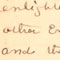 enlight
other E
and its